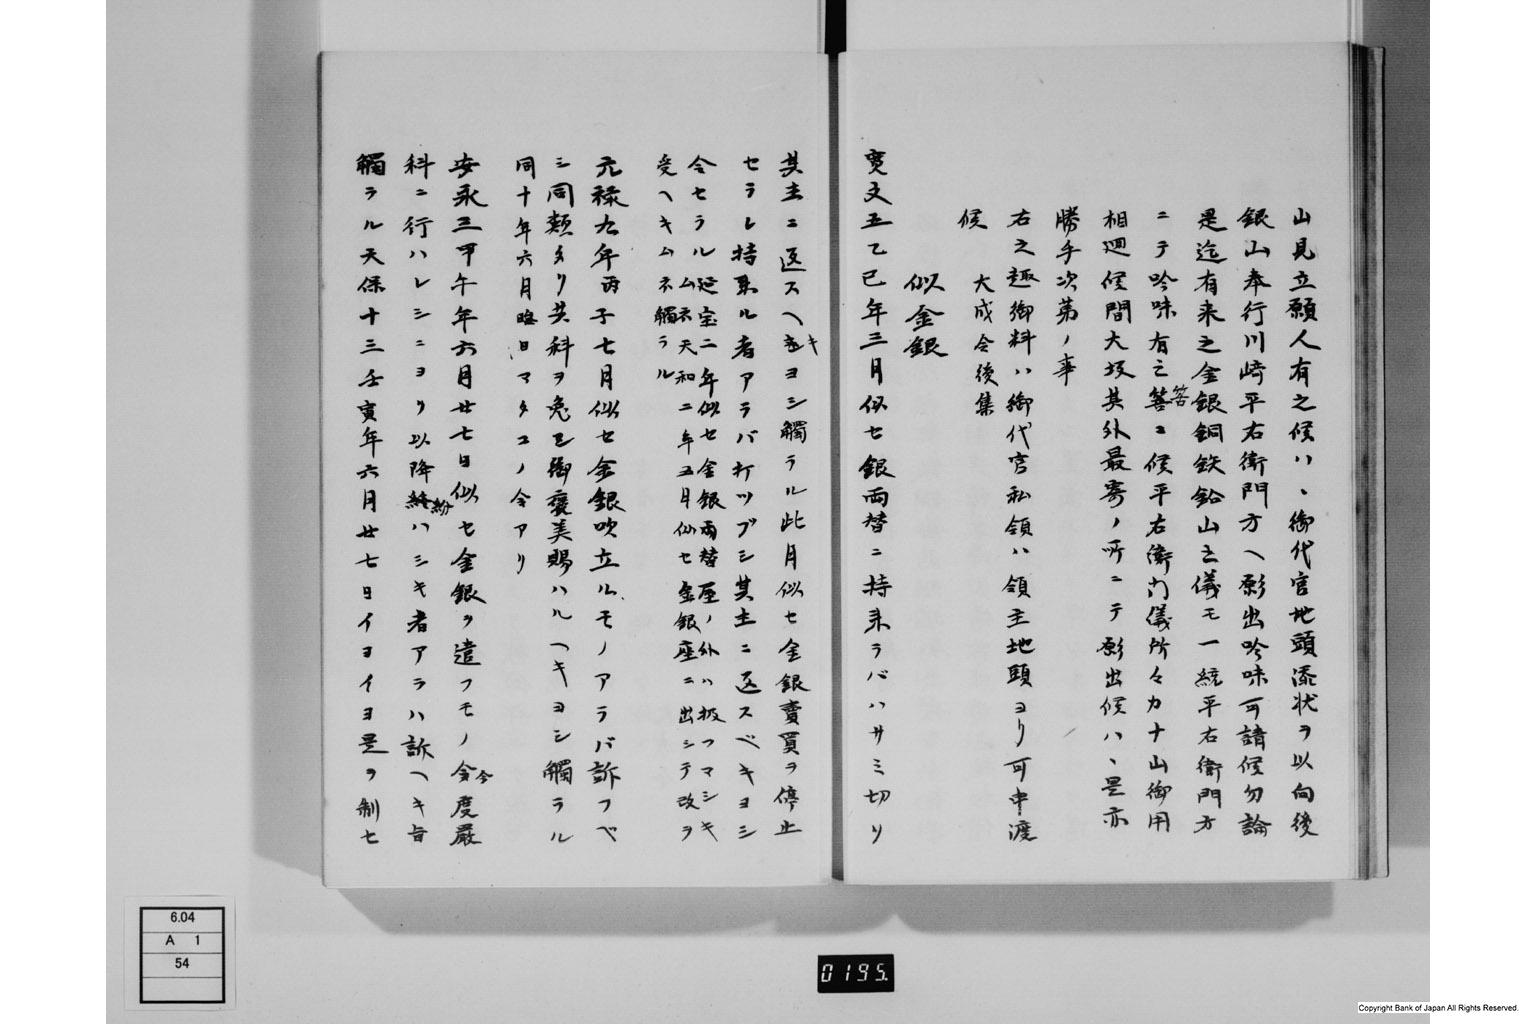 山見立願人有之候ハヽ御代官地頭添状ヲ以向後
銀山奉行川崎平右衛門方ヘ願出吟味可請候勿論
是迄有来之金銀銅鉄鉛山之儀モ一統平右衛門方
ニテ吟味有之筈ニ候平右衛門儀所々カナ山御用
筈
相廻候間大坂其外最寄ノ所ニテ願出候ハヽ是亦
勝手次第ノ事
右之趣御料ハ御代官私領ハ領主地頭ヨリ可申渡
候　大成令後集
似金銀
寛文五乙巳年三月似セ銀両替ニ持来ラバハサミ切リ
其主ニ返スヘキヨシ觸ラル此月似セ金銀賣買ヲ停止
キ
セラレ持来ル者アラバ打ツブシ其主ニ返スベキヨシ
令セラル延宝二年似セ金銀両替屋ノ外ハ扱フマシキ
ムネ天和二年五月似セ金銀座ニ出シテ改ヲ
受ヘキムネ觸ラル
元禄九年丙子七月似セ金銀吹立ルモノアラバ訴フベ
シ同類タリ共科ヲ免シ御褒美賜ハルヘキヨシ觸ラル
同十年六月晦日マタコノ令アリ
安永三甲午年六月廿七日似セ金銀ヲ遣フモノ今度嚴
今
科ニ行ハレシニヨリ以降紛ハシキ者アラハ訴ヘキ旨
紛
觸ラル天保十三壬寅年六月廿七日イヨイヨ是ヲ制セ
6.04
A 1
54
0195.
Copyright Bank of Japan All Rights Reserved.